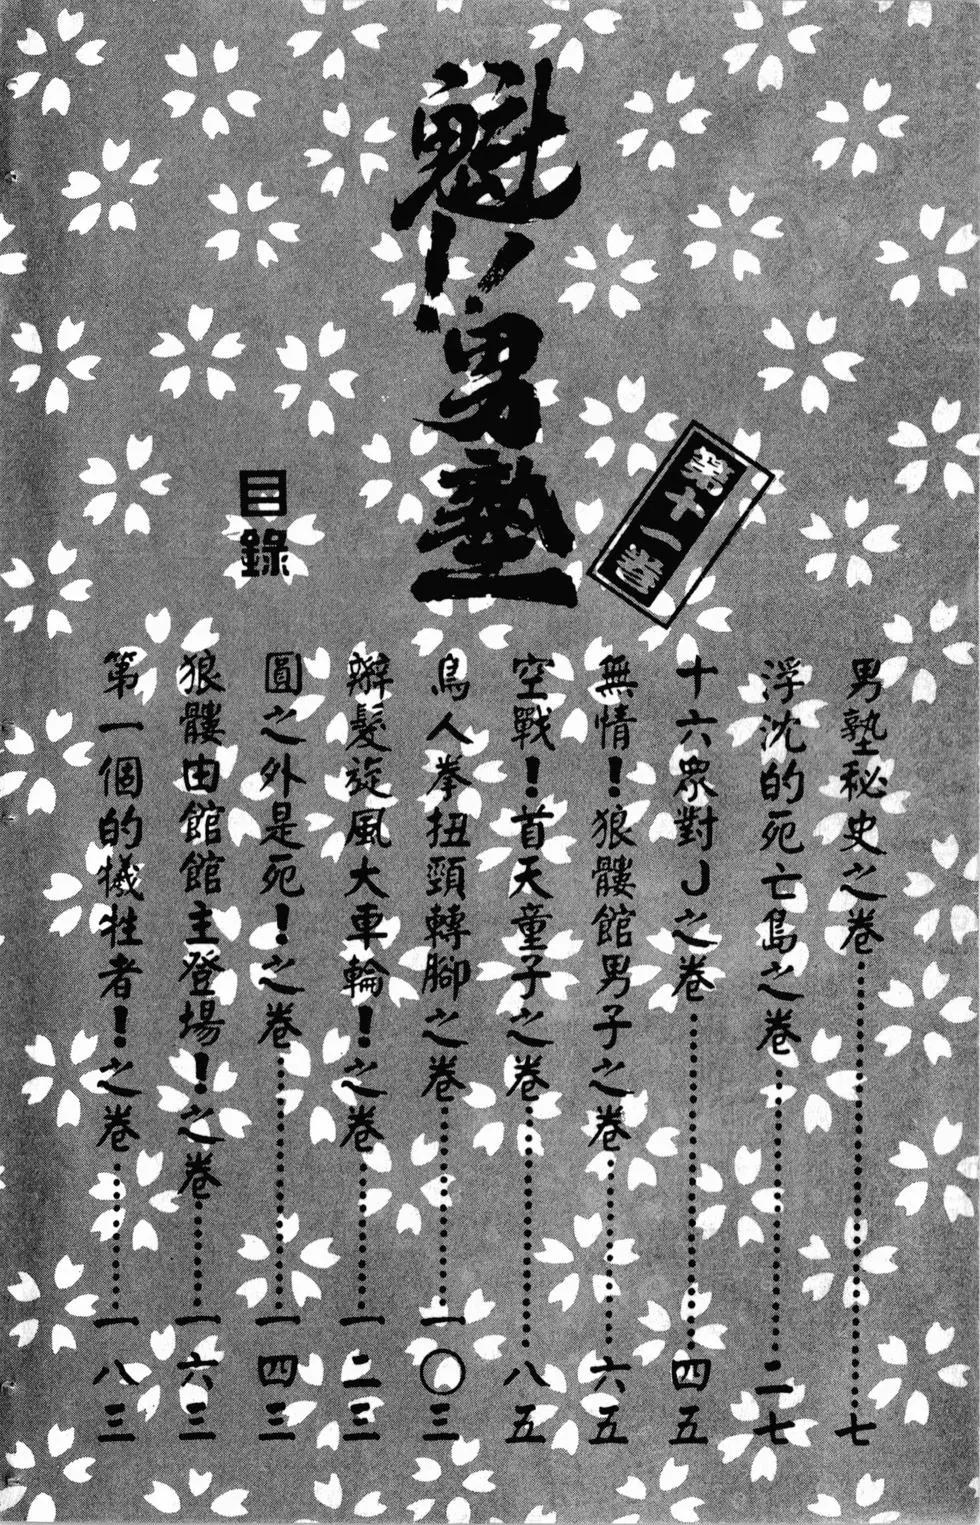 魁!!男塾
第十一巻
目錄
男塾秘史之卷……七
浮沈的死亡島之卷……二七
十六衆對J之卷……四五
無情!狼髏館男子之卷……六五
空戰!首天童子之卷……八五
鳥人拳扭頸轉腳之卷……一〇三
辮髮旋風大車輪!之卷……一二三
圓之外是死!之卷……一四三
狼髏由館館主登場!之卷……一六三
第一個的犧牲者!之卷……一八三